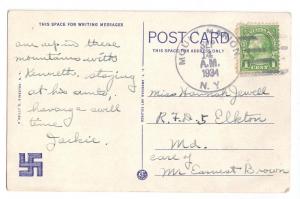 THIS SPACE FOR WRITING MESSAGES
POST CARD
THIS SPACE FOR ADDRESS ONLY
am up in these
mountains with
Kenneth, staying
at his aunts,
having a swell
time,
Jackie.
A.M.
1934
N.Y.
1 CENT 1
Miss Hannah Jewell
R.F.D. 5 Elkton
Md.
care of
Mr Earnest Brown